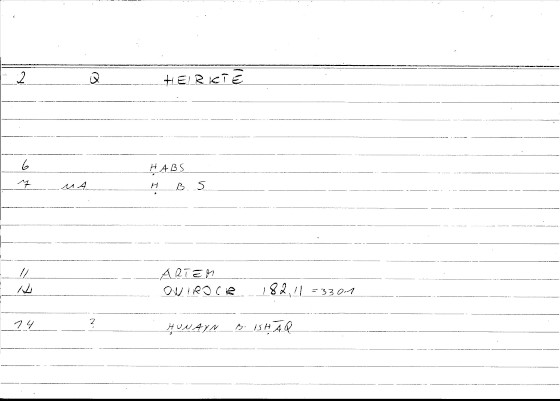 2 Q HEIRKTĒ
6 ḤABS
7 MA Ḥ B S
11 ARTEM
ONIROCR 182,11 = 3301
14 ? ḤUNAYN B ISḤĀQ